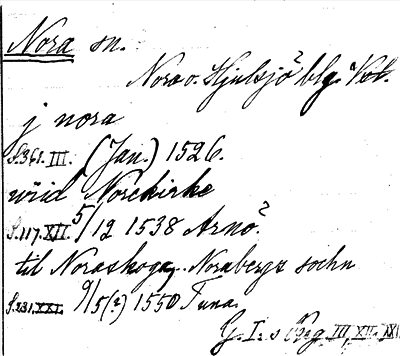 Nora sn.
Nora o. Hjulsjö blg. Vstm.
j nora
S.361.III. (Jan.) 1526.
wid Norekirke
S.117.XII. 5/12 1538 Arnö.
til Noraskoga, Norabergz sochn
S.231.XXI. 9/5(?) 1550 Tuna.
G. I:s Reg. III, XII, XXI